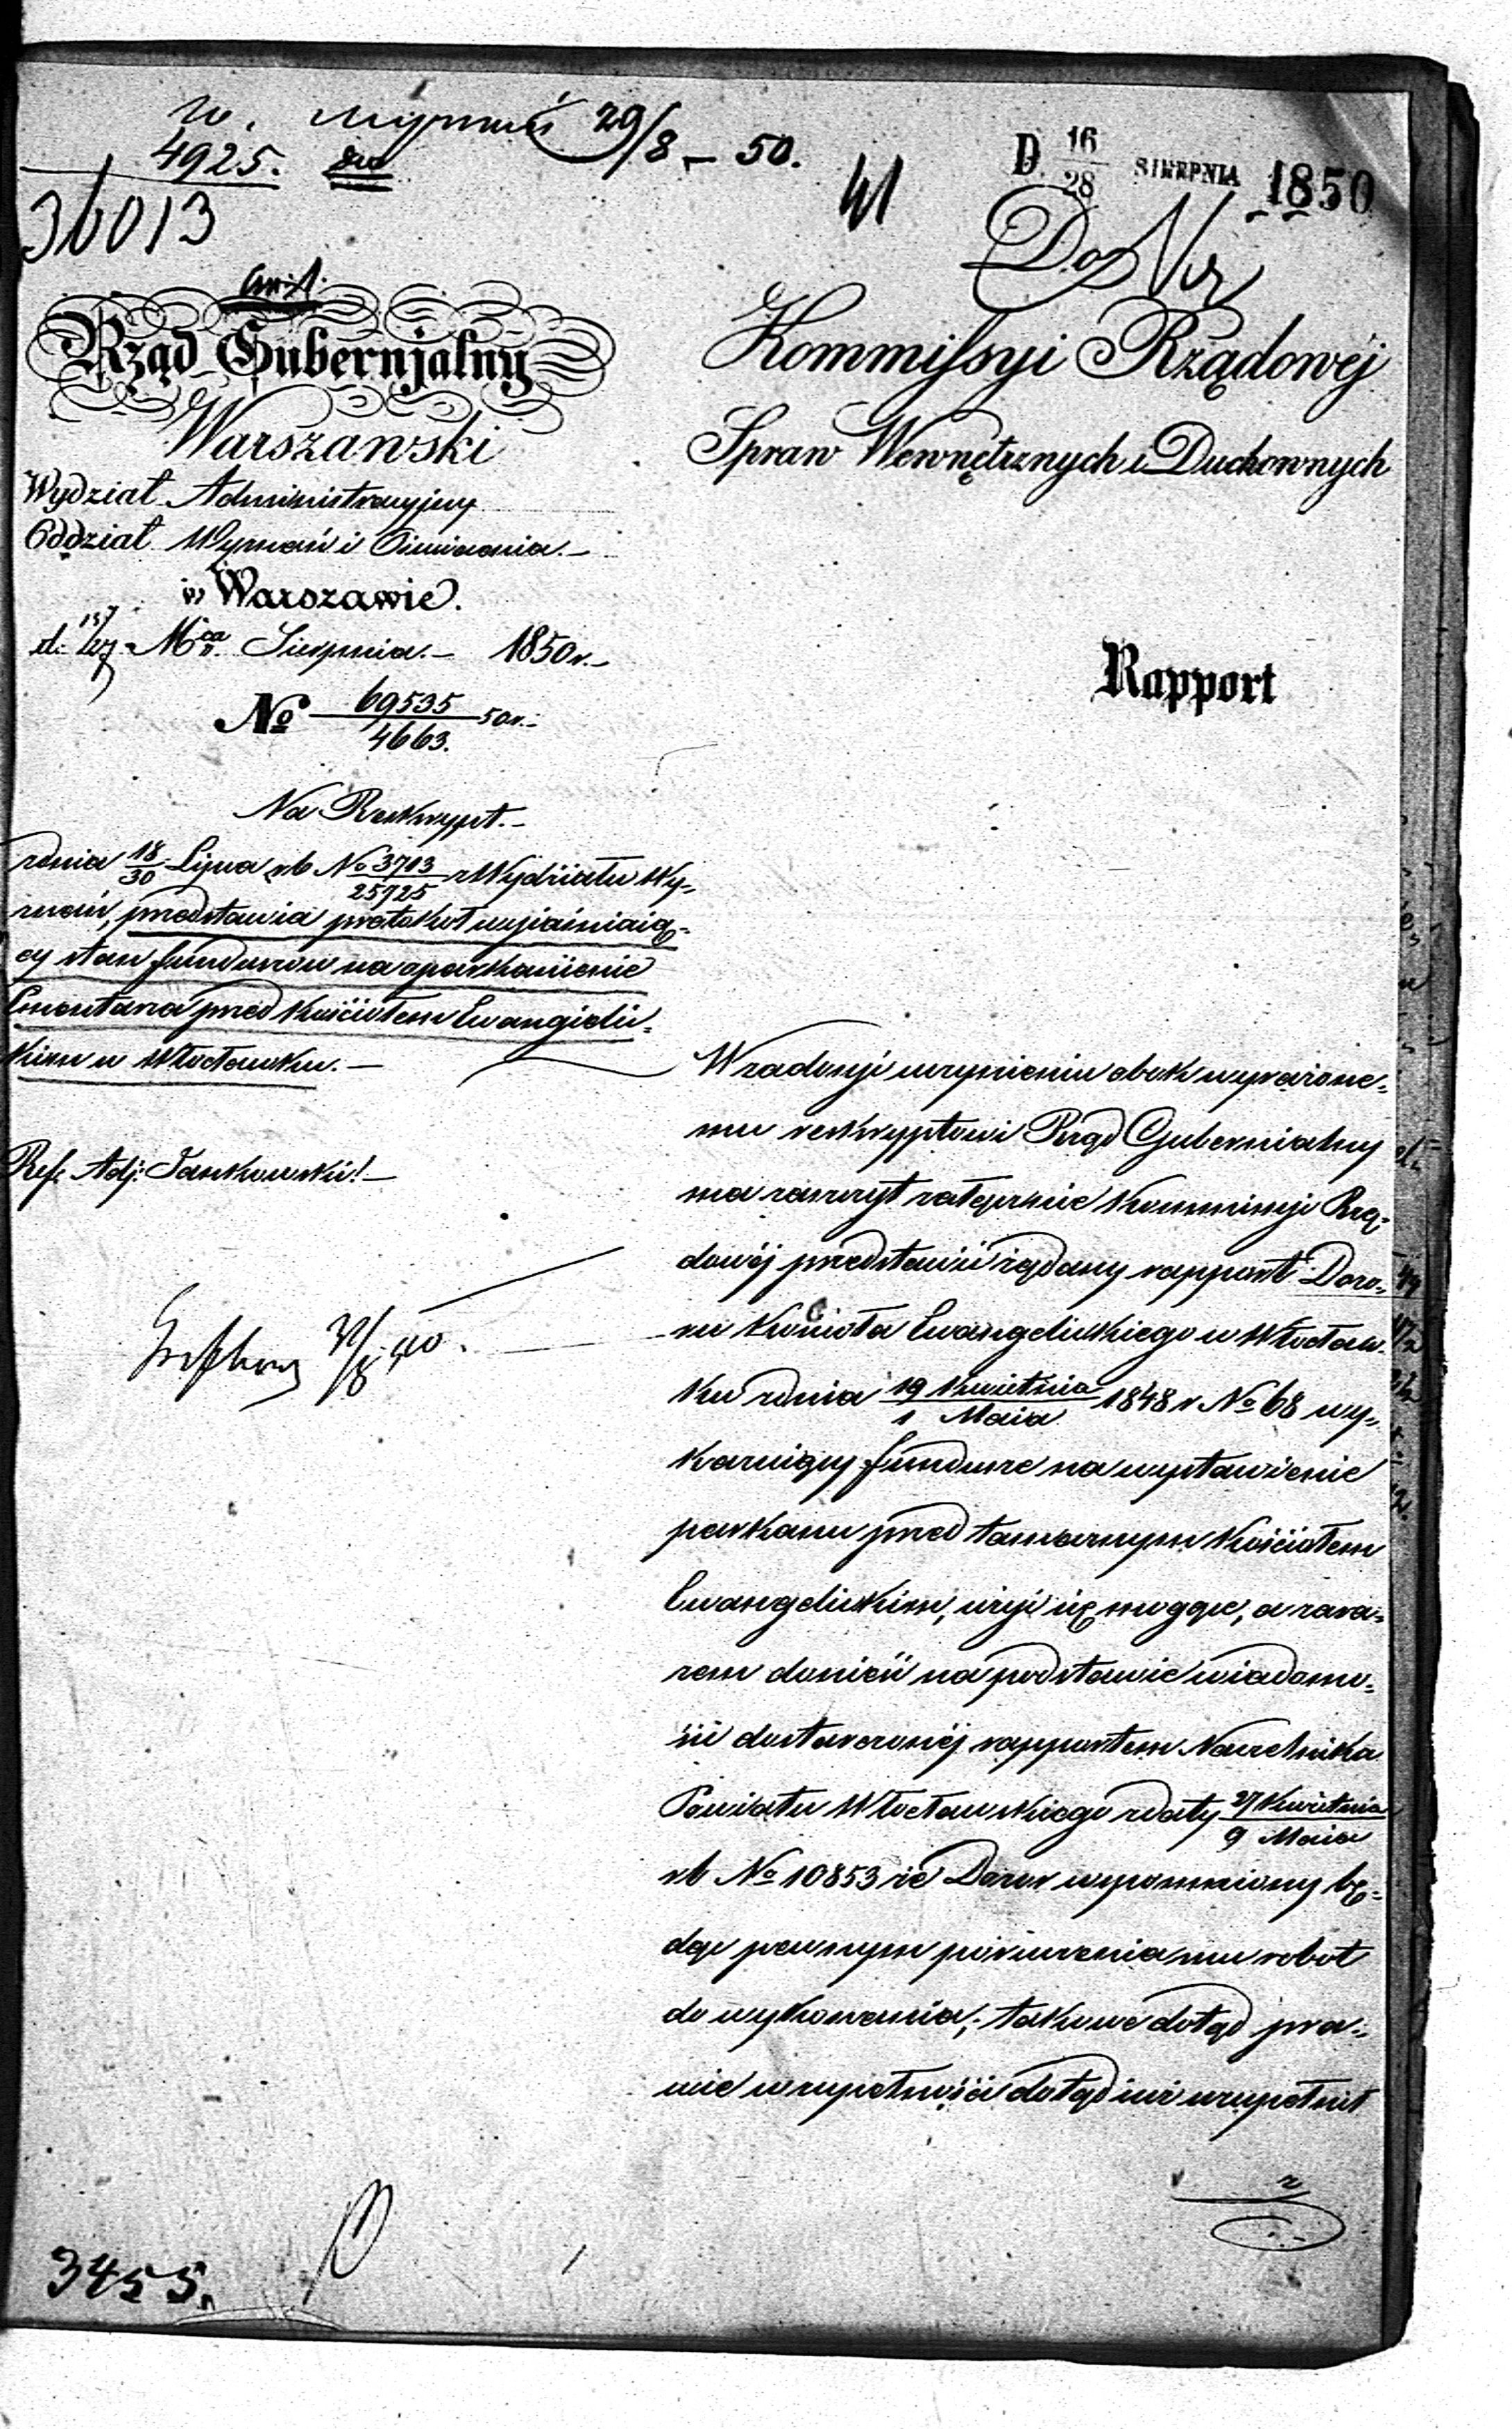 W. Wyznań 29/8 – 50.
4925.
36013
41
D. 16/28 SIERPNIA 1850
Rząd Gubernjalny
Warszawski
Wydział Administracyjny
Oddział Wyznań i Oświecenia.–
w Warszawie.
d. 15/27 Mca Sierpnia.– 1850 r.–
No 69535/4663. 50 r.–
Kommissyi Rządowéj
Spraw Wewnętrznych i Duchownych
Rapport
Na Reskrypt.–
z dnia 18/30 Lipca r b No 3713/25725 z Wydziału Wy-
znań, przedstawia protokół wyjaśniają-
cy stan funduszów na oparkanienie
Cmentarza przed Kościołem Ewangielic-
kim w Włocławku.–
Ref. Adj: Jankowski!–
W zadosyć uczynieniu obok wyrażone-
mu reskryptowi Rząd Gubernialny
ma zaszczyt załącznie Kommissyi Rzą-
dowéj przedstawić żądany rapport Dozo-
ru Kościoła Ewangelickiego w Włocław-
ku z dnia 19 Kwietnia/1 Maia 1848 r No 68 wy-
kazuiący fundusze na wystawienie
parkanu przed tamecznym Kościołem
Ewangelickim, użyć się mogące, a zara-
zem donieść na podstawie wiadomo-
ści dostarczonéj rapportem Naczelnika
Powiatu Włocławskiego z daty 27 Kwietnia/9 Maia
r b No 10853 że Dozór wspomniony bę-
dąc pewnym poruczenia mu robot
do wykonania; takowe dotąd pra-
wie w zupełności dotąd iuż uzupełnił
3455.